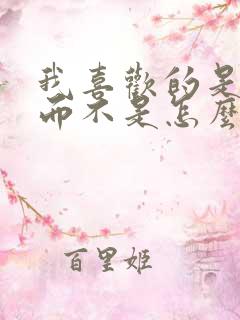 我喜歡的是
而不是怎麼
百里姬